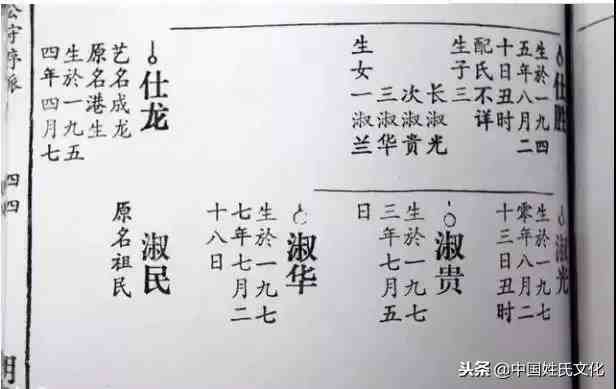 仕胜
生於一九四
五年八月二
十日丑时
配氏不详
生子三
长淑光
次淑贵
三淑华
生女一淑兰
仕龙
艺名成龙
原名港生
生於一九五
四年四月七
淑光
生於一九七
零年八月二
十三日丑时
淑贵
生於一九七
三年七月五
日
淑华
生於一九七
七年七月二
十八日
淑民
原名祖民
四四
头条 @中国姓氏文化